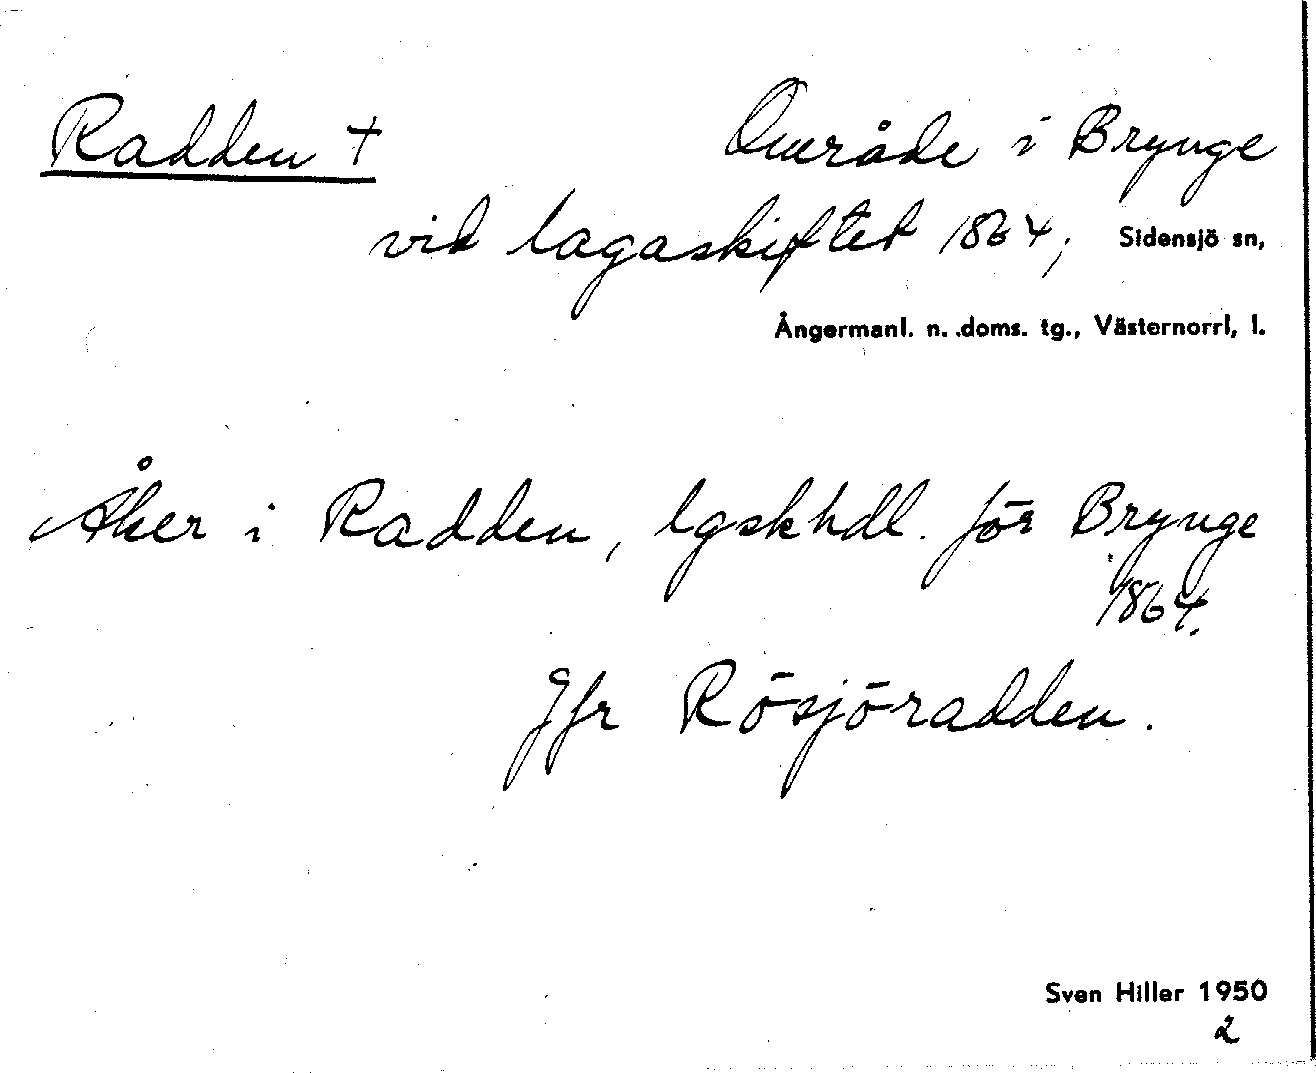 Radden + Område i Brynge
vid lagaskiftet 1864, Sidensjö sn,
Ångermanl. n. doms. tg., Västernorrl, l.
Åker i Radden, lgskhdl. för Brynge
1864.
Jfr Rösjöradden.
Sven Hiller 1950
2